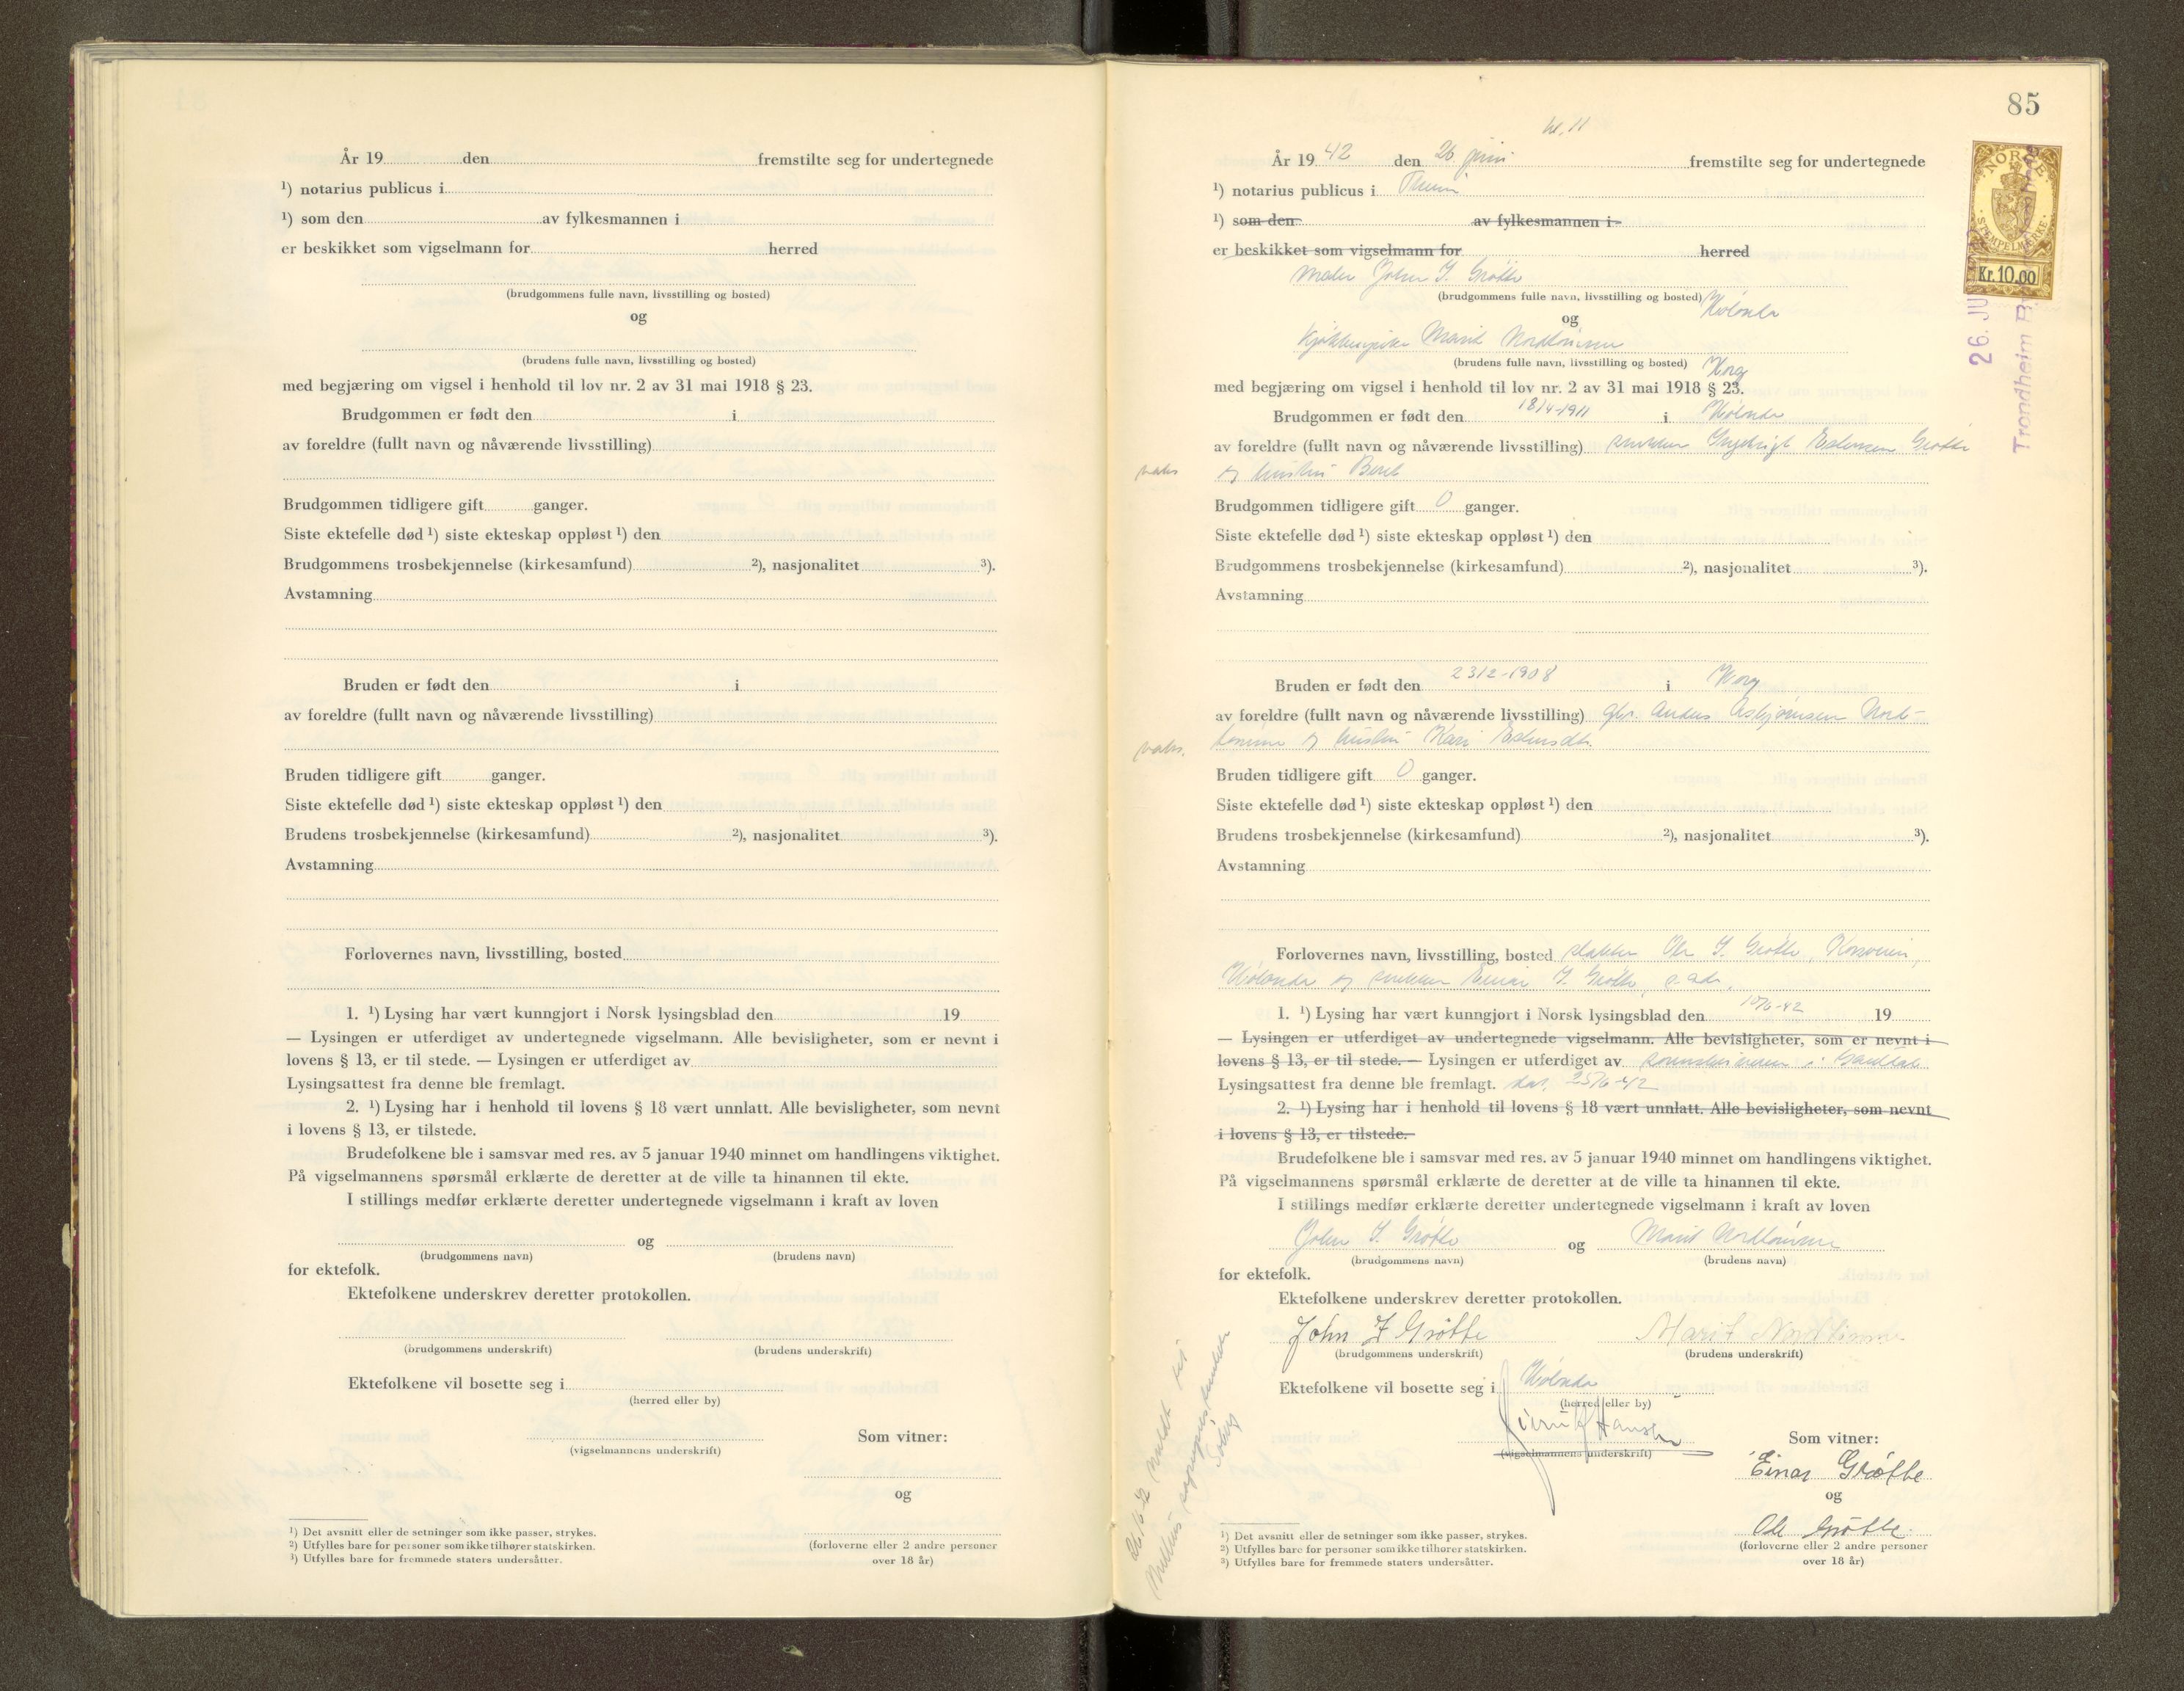 År 19 den fremstilte seg for undertegnede
¹) notarius publicus i
¹) som den av fylkesmannen i
er beskikket som vigselmann for herred
(brudgommens fulle navn, livsstilling og bosted)
og
(brudens fulle navn, livsstilling og bosted)
med begjæring om vigsel i henhold til lov nr. 2 av 31 mai 1918 § 23.
Brudgommen er født den i
av foreldre (fullt navn og nåværende livsstilling)
Brudgommen tidligere gift ganger.
Siste ektefelle død ¹) siste ekteskap oppløst ¹) den
Brudgommens trosbekjennelse (kirkesamfund) ²), nasjonalitet ³).
Avstamning
Bruden er født den i
av foreldre (fullt navn og nåværende livsstilling)
Bruden tidligere gift ganger.
Siste ektefelle død ¹) siste ekteskap oppløst ¹) den
Brudens trosbekjennelse (kirkesamfund) ²), nasjonalitet ³).
Avstamning
Forlovernes navn, livsstilling, bosted
1. ¹) Lysing har vært kunngjort i Norsk lysingsblad den 19
— Lysingen er utferdiget av undertegnede vigselmann. Alle bevisligheter, som er nevnt i
lovens § 13, er til stede. — Lysingen er utferdiget av
Lysingsattest fra denne ble fremlagt.
2. ¹) Lysing har i henhold til lovens § 18 vært unnlatt. Alle bevisligheter, som nevnt
i lovens § 13, er tilstede.
Brudefolkene ble i samsvar med res. av 5 januar 1940 minnet om handlingens viktighet.
På vigselmannens spørsmål erklærte de deretter at de ville ta hinannen til ekte.
I stillings medfør erklærte deretter undertegnede vigselmann i kraft av loven
og
(brudgommens navn) (brudens navn)
for ektefolk.
Ektefolkene underskrev deretter protokollen.
(brudgommens underskrift) (brudens underskrift)
Ektefolkene vil bosette seg i
(herred eller by)
(vigselmannens underskrift)
Som vitner:
og
(forloverne eller 2 andre personer
over 18 år)
¹) Det avsnitt eller de setninger som ikke passer, strykes.
²) Utfylles bare for personer som ikke tilhører statskirken.
³) Utfylles bare for fremmede staters undersåtter.
85
kl. 11
År 19 42 den 26 juni fremstilte seg for undertegnede
¹) notarius publicus i
¹) som den av fylkesmannen i
er beskikket som vigselmann for herred
maler John I. Grøtte
(brudgommens fulle navn, livsstilling og bosted) Hølonda
og
Kjøkkenpike Marit Nordtømme
(brudens fulle navn, livsstilling og bosted) Horg
med begjæring om vigsel i henhold til lov nr. 2 av 31 mai 1918 § 23.
Brudgommen er født den 18/4-1911 i Hølonda
av foreldre (fullt navn og nåværende livsstilling) snekker Ingebrigt Estensen Grøtte
og hustru Beret
Brudgommen tidligere gift 0 ganger.
Siste ektefelle død ¹) siste ekteskap oppløst ¹) den
Brudgommens trosbekjennelse (kirkesamfund) ²), nasjonalitet ³).
Avstamning
Bruden er født den 23/2-1908 i Horg
av foreldre (fullt navn og nåværende livsstilling) gbr. Anders Asbjørnsen Nord-
tømme og hustru Kari Estensdtr.
Bruden tidligere gift 0 ganger.
Siste ektefelle død ¹) siste ekteskap oppløst ¹) den
Brudens trosbekjennelse (kirkesamfund) ²), nasjonalitet ³).
Avstamning
Forlovernes navn, livsstilling, bosted Ole I. Grøtte,
Hølonda og snekker Einar I. Grøtte, s. adr.
1. ¹) Lysing har vært kunngjort i Norsk lysingsblad den 10/6-42 19
— Lysingen er utferdiget av undertegnede vigselmann. Alle bevisligheter, som er nevnt i
lovens § 13, er til stede. — Lysingen er utferdiget av sorenskriveren i Gauldal
Lysingsattest fra denne ble fremlagt. dat. 25/6-42
2. ¹) Lysing har i henhold til lovens § 18 vært unnlatt. Alle bevisligheter, som nevnt
i lovens § 13, er tilstede.
Brudefolkene ble i samsvar med res. av 5 januar 1940 minnet om handlingens viktighet.
På vigselmannens spørsmål erklærte de deretter at de ville ta hinannen til ekte.
I stillings medfør erklærte deretter undertegnede vigselmann i kraft av loven
John I. Grøtte og Marit Nordtømme
(brudgommens navn) (brudens navn)
for ektefolk.
Ektefolkene underskrev deretter protokollen.
John I Grøtte Marit Nordtømme
(brudgommens underskrift) (brudens underskrift)
Ektefolkene vil bosette seg i Hølonda
(herred eller by)
(vigselmannens underskrift)
Som vitner:
Einar Grøtte
og
Ole Grøtte
(forloverne eller 2 andre personer
over 18 år)
¹) Det avsnitt eller de setninger som ikke passer, strykes.
²) Utfylles bare for personer som ikke tilhører statskirken.
³) Utfylles bare for fremmede staters undersåtter.
NORGE
STEMPELMERKE
Kr. 10.00
26. JU
Trondheim
26/6-42 meldt til